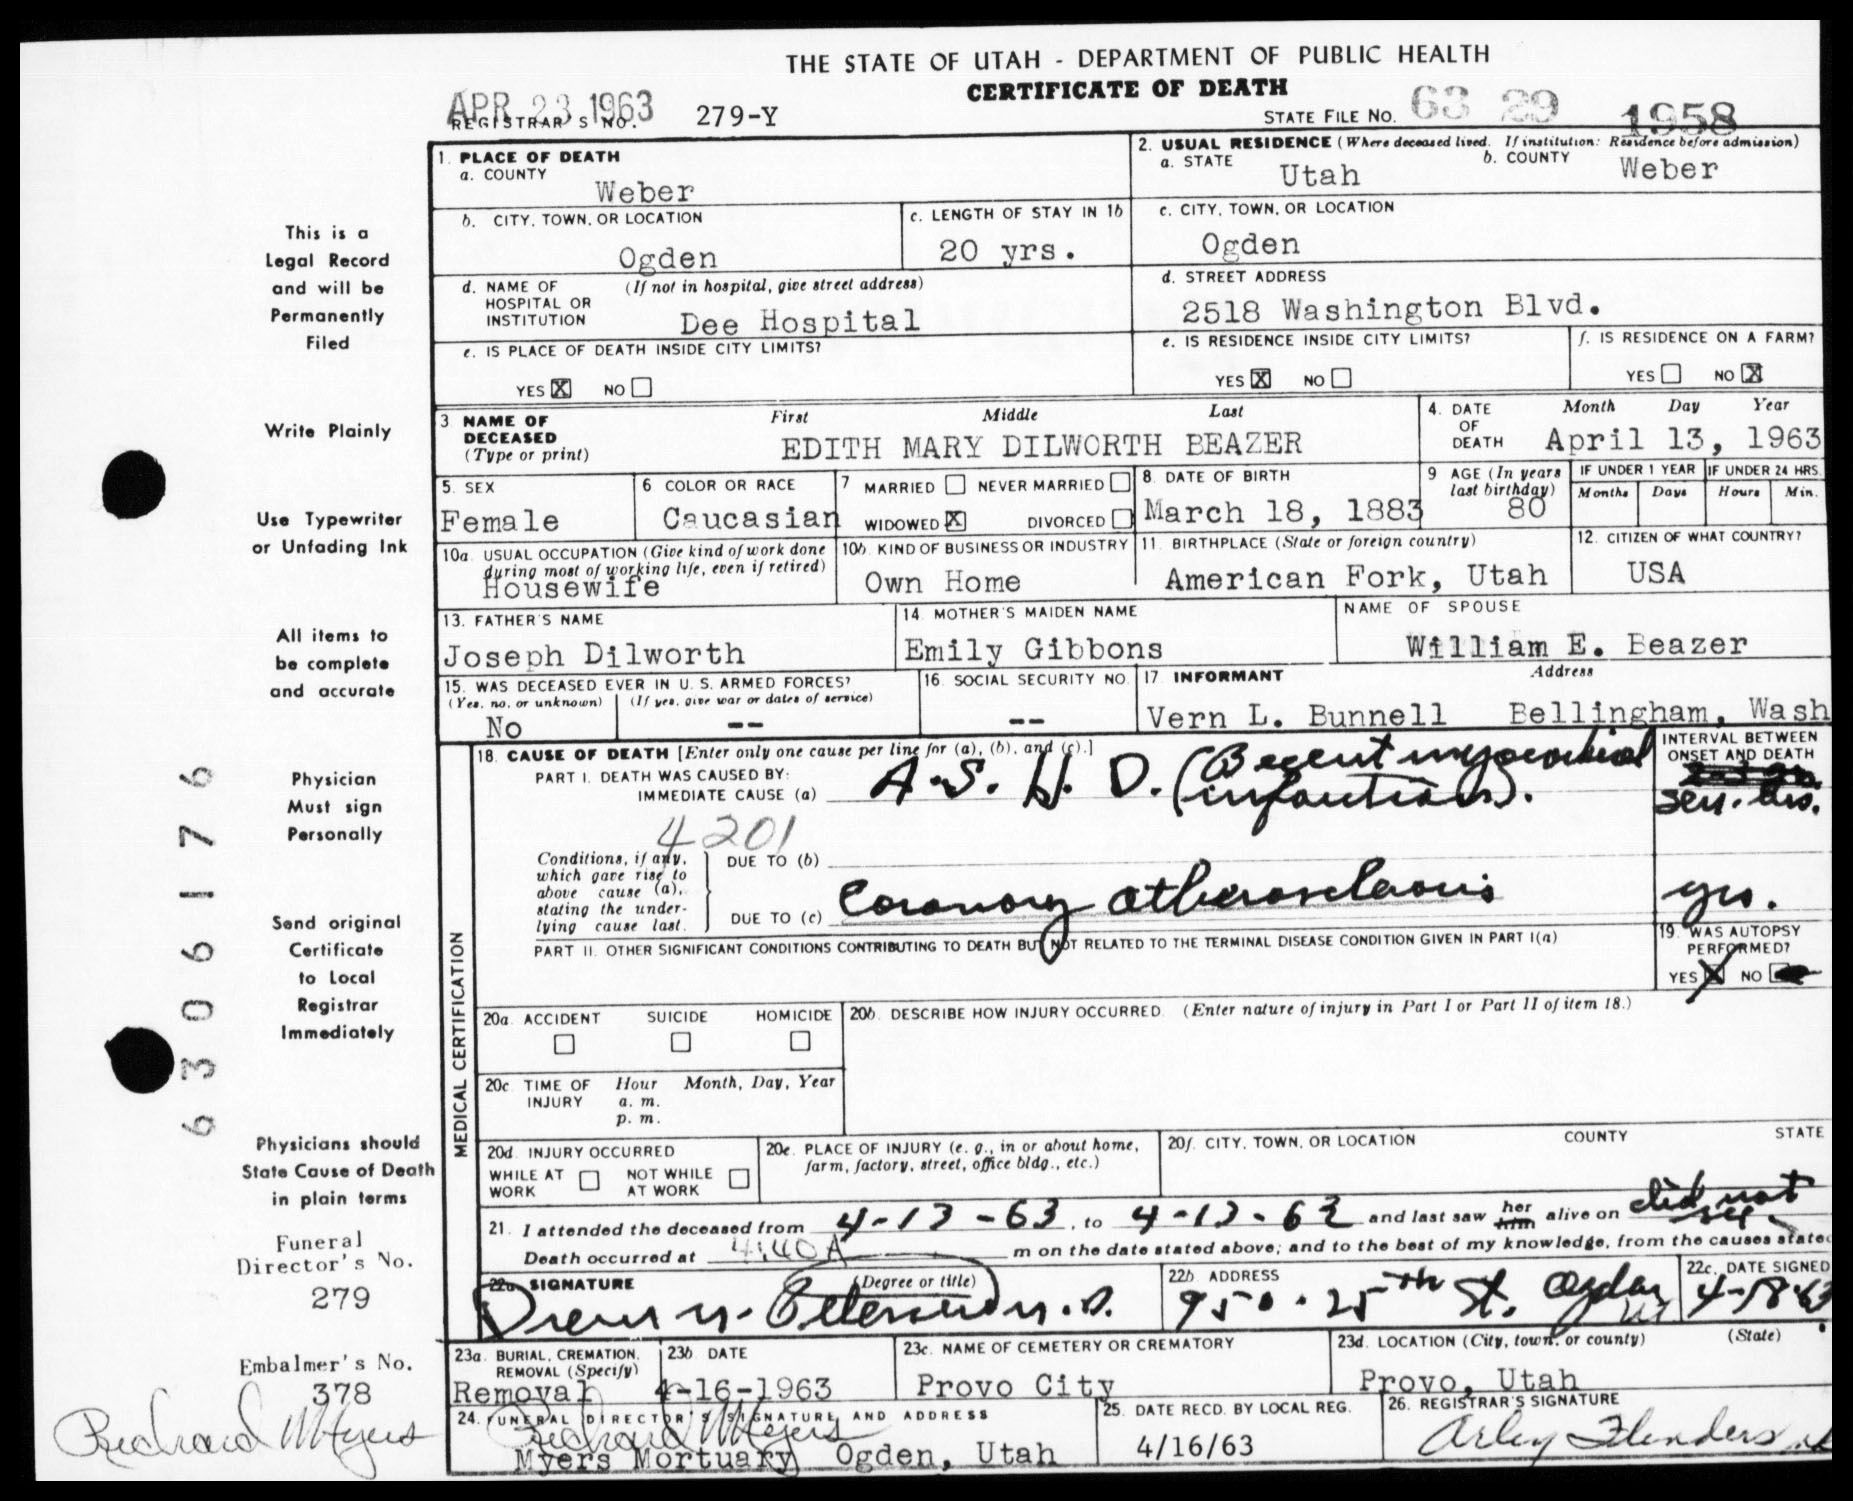 THE STATE OF UTAH - DEPARTMENT OF PUBLIC HEALTH
CERTIFICATE OF DEATH
APR 23 1963
REGISTRAR'S NO. 279-Y
STATE FILE NO. 63 29 1958
1. PLACE OF DEATH
a. COUNTY
Weber
2. USUAL RESIDENCE (Where deceased lived. If institution: Residence before admission)
a. STATE
Utah
b. COUNTY
Weber
b. CITY, TOWN, OR LOCATION
Ogden
c. LENGTH OF STAY IN 1b
20 yrs.
c. CITY, TOWN, OR LOCATION
Ogden
d. NAME OF HOSPITAL OR INSTITUTION
(If not in hospital, give street address)
Dee Hospital
d. STREET ADDRESS
2518 Washington Blvd.
e. IS PLACE OF DEATH INSIDE CITY LIMITS?
YES X NO
e. IS RESIDENCE INSIDE CITY LIMITS?
YES X NO
f. IS RESIDENCE ON A FARM?
YES NO X
3 NAME OF DECEASED
(Type or print)
First Middle Last
EDITH MARY DILWORTH BEAZER
4. DATE OF DEATH
Month Day Year
April 13, 1963
5. SEX
Female
6 COLOR OR RACE
Caucasian
7 MARRIED NEVER MARRIED
WIDOWED X DIVORCED
8. DATE OF BIRTH
March 18, 1883
9 AGE (In years last birthday)
80
IF UNDER 1 YEAR
Months Days
IF UNDER 24 HRS.
Hours Min.
10a. USUAL OCCUPATION (Give kind of work done during most of working life, even if retired)
Housewife
10b. KIND OF BUSINESS OR INDUSTRY
Own Home
11. BIRTHPLACE (State or foreign country)
American Fork, Utah
12. CITIZEN OF WHAT COUNTRY?
USA
13. FATHER'S NAME
Joseph Dilworth
14. MOTHER'S MAIDEN NAME
Emily Gibbons
NAME OF SPOUSE
William E. Beazer
15. WAS DECEASED EVER IN U. S. ARMED FORCES?
(Yes, no, or unknown) (If yes, give war or dates of service)
No --
16. SOCIAL SECURITY NO.
--
17. INFORMANT Address
Vern L. Bunnell Bellingham, Wash
MEDICAL CERTIFICATION
18. CAUSE OF DEATH [Enter only one cause per line for (a), (b), and (c).]
PART I. DEATH WAS CAUSED BY:
IMMEDIATE CAUSE (a) A.S.H.D. (Recent myocardial infarction).
INTERVAL BETWEEN ONSET AND DEATH
sev. hrs.
4201
Conditions, if any, which gave rise to above cause (a), stating the underlying cause last.
DUE TO (b)
DUE TO (c) Coronary atherosclerosis
yrs.
PART II. OTHER SIGNIFICANT CONDITIONS CONTRIBUTING TO DEATH BUT NOT RELATED TO THE TERMINAL DISEASE CONDITION GIVEN IN PART I(a)
19. WAS AUTOPSY PERFORMED?
YES X NO
20a. ACCIDENT SUICIDE HOMICIDE
20b. DESCRIBE HOW INJURY OCCURRED. (Enter nature of injury in Part I or Part II of item 18.)
20c. TIME OF INJURY
Hour Month, Day, Year
a. m.
p. m.
20d. INJURY OCCURRED
WHILE AT WORK NOT WHILE AT WORK
20e. PLACE OF INJURY (e. g., in or about home, farm, factory, street, office bldg., etc.)
20f. CITY, TOWN, OR LOCATION COUNTY STATE
21. I attended the deceased from 4-13-63, to 4-13-63 and last saw her him alive on did not see.
Death occurred at 4:40 A m on the date stated above; and to the best of my knowledge, from the causes stated
22a. SIGNATURE (Degree or title)
Drew M. Petersen M.D.
22b. ADDRESS
950-25th St. Ogden Ut
22c. DATE SIGNED
4-18-63
23a. BURIAL, CREMATION, REMOVAL (Specify)
Removal
23b. DATE
4-16-1963
23c. NAME OF CEMETERY OR CREMATORY
Provo City
23d. LOCATION (City, town, or county) (State)
Provo, Utah
24. FUNERAL DIRECTOR'S SIGNATURE AND ADDRESS
Richard W Myers
Myers Mortuary Ogden, Utah
25. DATE RECD. BY LOCAL REG.
4/16/63
26. REGISTRAR'S SIGNATURE
Arley Flinders
This is a
Legal Record
and will be
Permanently
Filed
Write Plainly
Use Typewriter
or Unfading Ink
All items to
be complete
and accurate
Physician
Must sign
Personally
Send original
Certificate
to Local
Registrar
Immediately
Physicians should
State Cause of Death
in plain terms
Funeral
Director's No.
279
Embalmer's No.
378
Richard W Myers
6306176